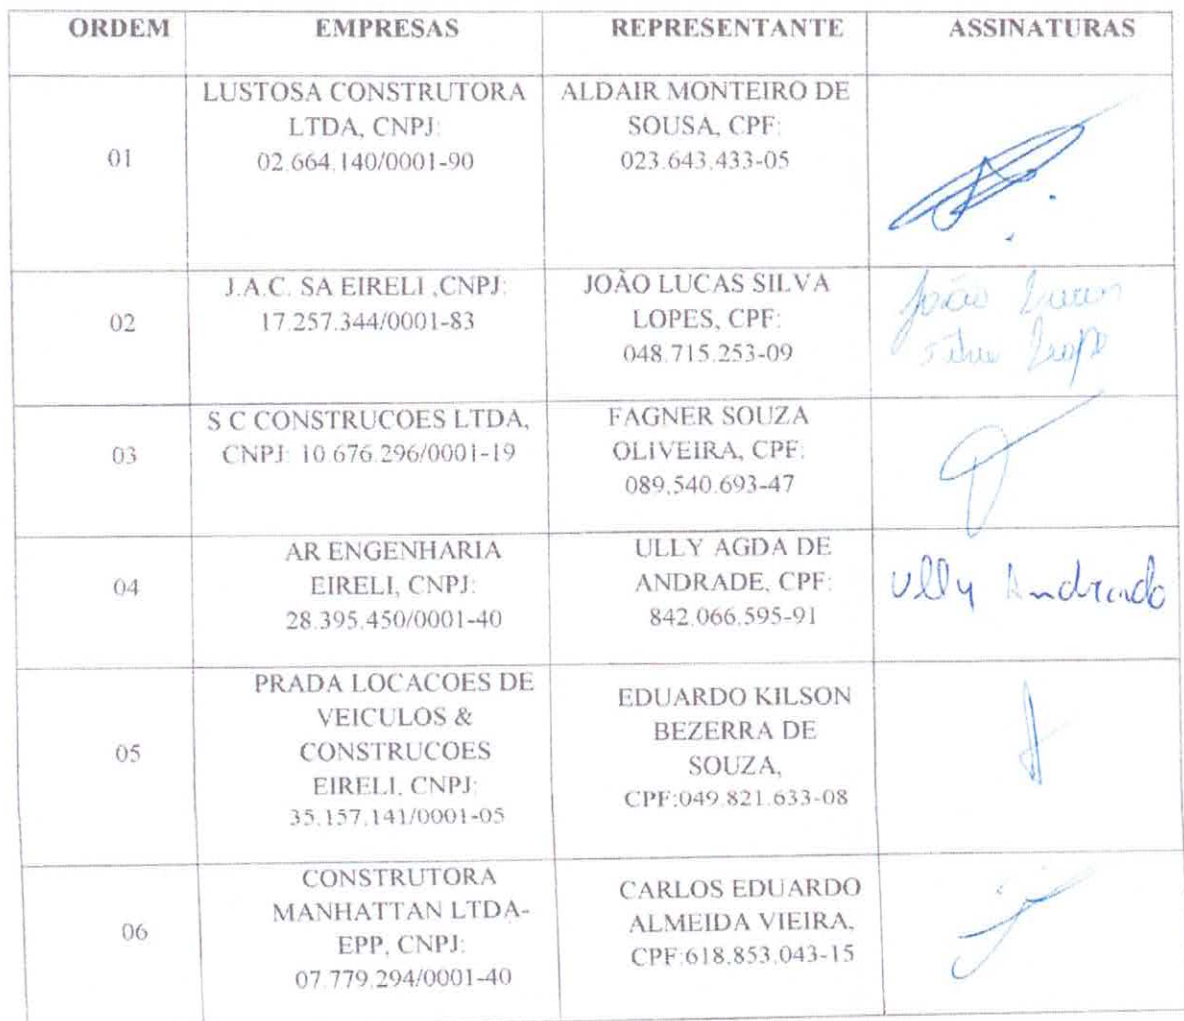 ORDEM EMPRESAS REPRESENTANTE ASSINATURAS
LUSTOSA CONSTRUTORA
LTDA, CNPJ:
02.664.140/0001-90
01
ALDAIR MONTEIRO DE
SOUSA, CPF:
023.643.433-05
02
J.A.C. SA EIRELI ,CNPJ:
17.257.344/0001-83
JOÃO LUCAS SILVA
LOPES, CPF:
048.715.253-09
João Lucas
Silva Lope
03
S C CONSTRUCOES LTDA,
CNPJ: 10.676.296/0001-19
FAGNER SOUZA
OLIVEIRA, CPF:
089.540.693-47
04
AR ENGENHARIA
EIRELI, CNPJ:
28.395.450/0001-40
ULLY AGDA DE
ANDRADE, CPF:
842.066.595-91
Ully Andrade
05
PRADA LOCACOES DE
VEICULOS &
CONSTRUCOES
EIRELI, CNPJ:
35.157.141/0001-05
EDUARDO KILSON
BEZERRA DE
SOUZA,
CPF:049.821.633-08
06
CONSTRUTORA
MANHATTAN LTDA-
EPP, CNPJ:
07.779.294/0001-40
CARLOS EDUARDO
ALMEIDA VIEIRA,
CPF:618.853.043-15